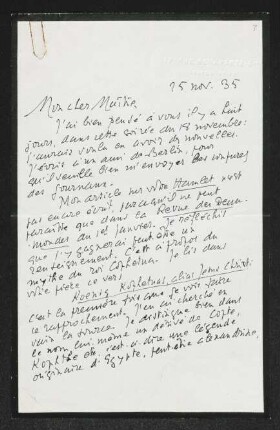 25 nov. 35
Mon cher Maître
J'ai bien pensé à vous il y a huit
jours, dans cette soirée du 18 novembre:
j'aurais voulu en avoir des nouvelles.
J'écris à un ami de Berlin, pour
qu'il veuille bien m'envoyer les coupures
des journaux.
Mon article sur votre Hamlet n'est
pas encore écrit, parce qu'il ne peut
paraître que dans la Revue des Deux-
mondes du 1er janvier. Je réfléchis
que j'y gagnerai peut-être un
renseignement. C'est à propos du
mythe du roi Cophetua. Je lis dans
votre pièce ce vers
Koenig Kophetua, alias Jesus Christ.
C'est la première fois que je vois faire
ce rapprochement. J'en ai cherché en
vain la source. Je distingue bien dans
le nom lui même un dérivé de Copte,
Kophte etc, c'est-à-dire une légende
originaire d'Egypte, peut-être alexandrine,